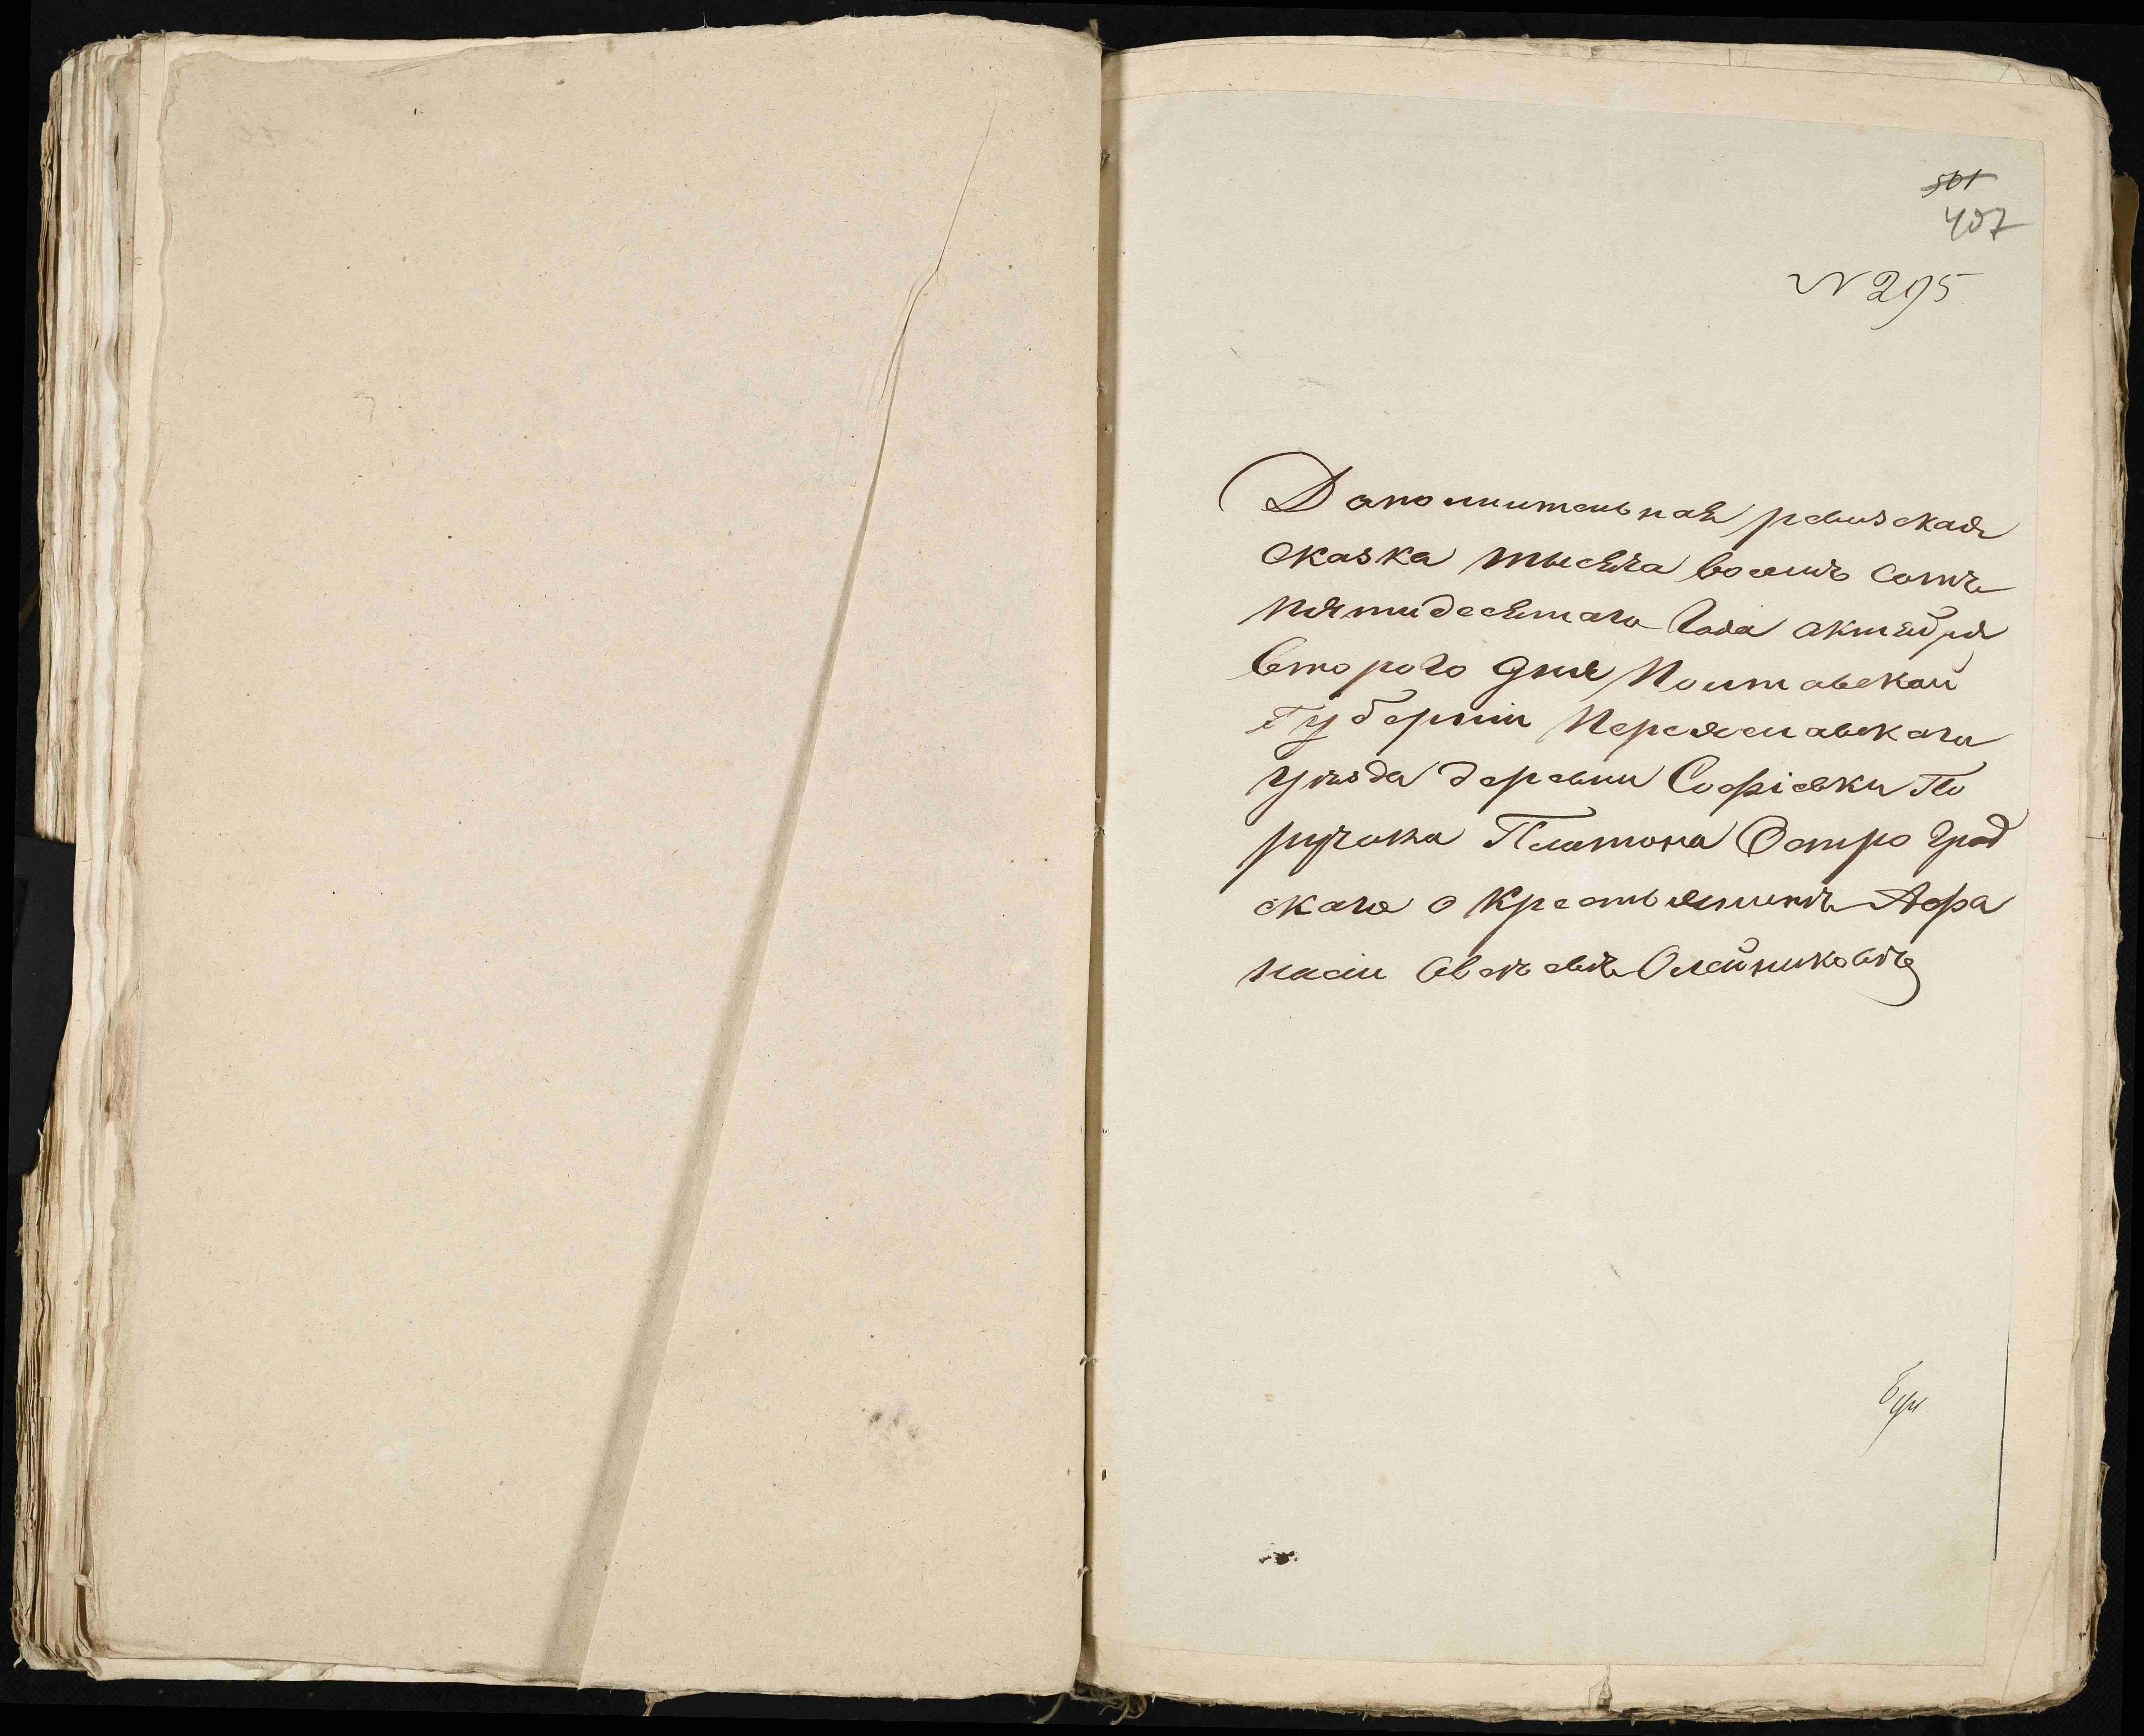 501
407
N 295
Дополнительная ревизская
сказка тысяча восемь сотъ
пятидесятаго Года октября
второго дня Полтавской
Губернии Переяславскаго
уѣзда деревни Софіевки По
ручика Платона Остроград
скаго о крестьянинѣ Афа
насіи Олейниковѣ